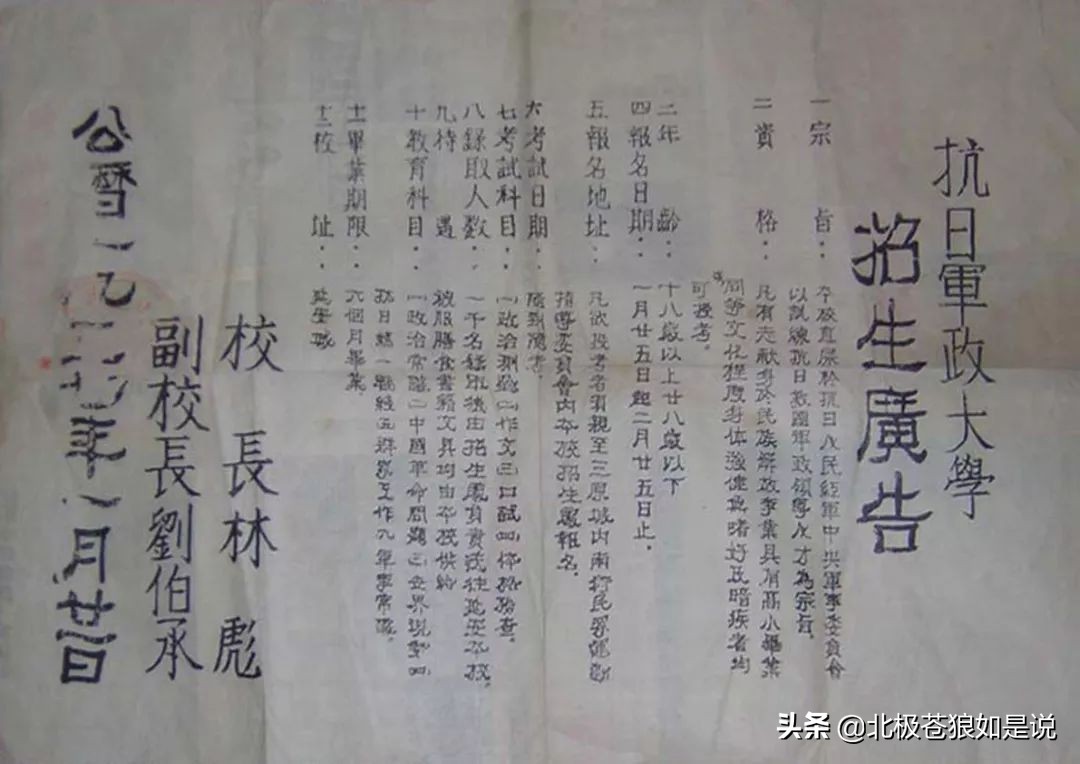 抗日軍政大學
招生廣告
一宗旨．本校直屬於抗日人民紅軍中央軍事委員會
以訓練抗日救國軍政領導人才為宗旨．
二資格．凡有志獻身於民族解放事業具有高小畢業
同等文化程度身体強健無嗜好及暗疾者均
可投考．
二年齡．十八歲以上廿八歲以下
四報名日期．一月廿五日起二月廿五日止．
五報名地址．凡欲投考者須親至三原城內南行民眾運動
指導委員會內本校招生處報名．
六考試日期．隨到隨考．
七考試科目．㈠政治測驗㈡作文㈢口試㈣体格檢查．
八錄取人數．一千名錄取後由招生處負責送往延安本校．
九待遇．被服膳食書籍文具均由本校供給
十教育科目．㈠政治常識㈡中國革命問題㈢世界現勢㈣
抗日統一戰線㈤群眾工作㈥軍事常識．
十一畢業期限．六個月畢業．
十二校址．延安城
校長林彪
副校長劉伯承
公曆一九三七年一月廿三日
头条 @北极苍狼如是说